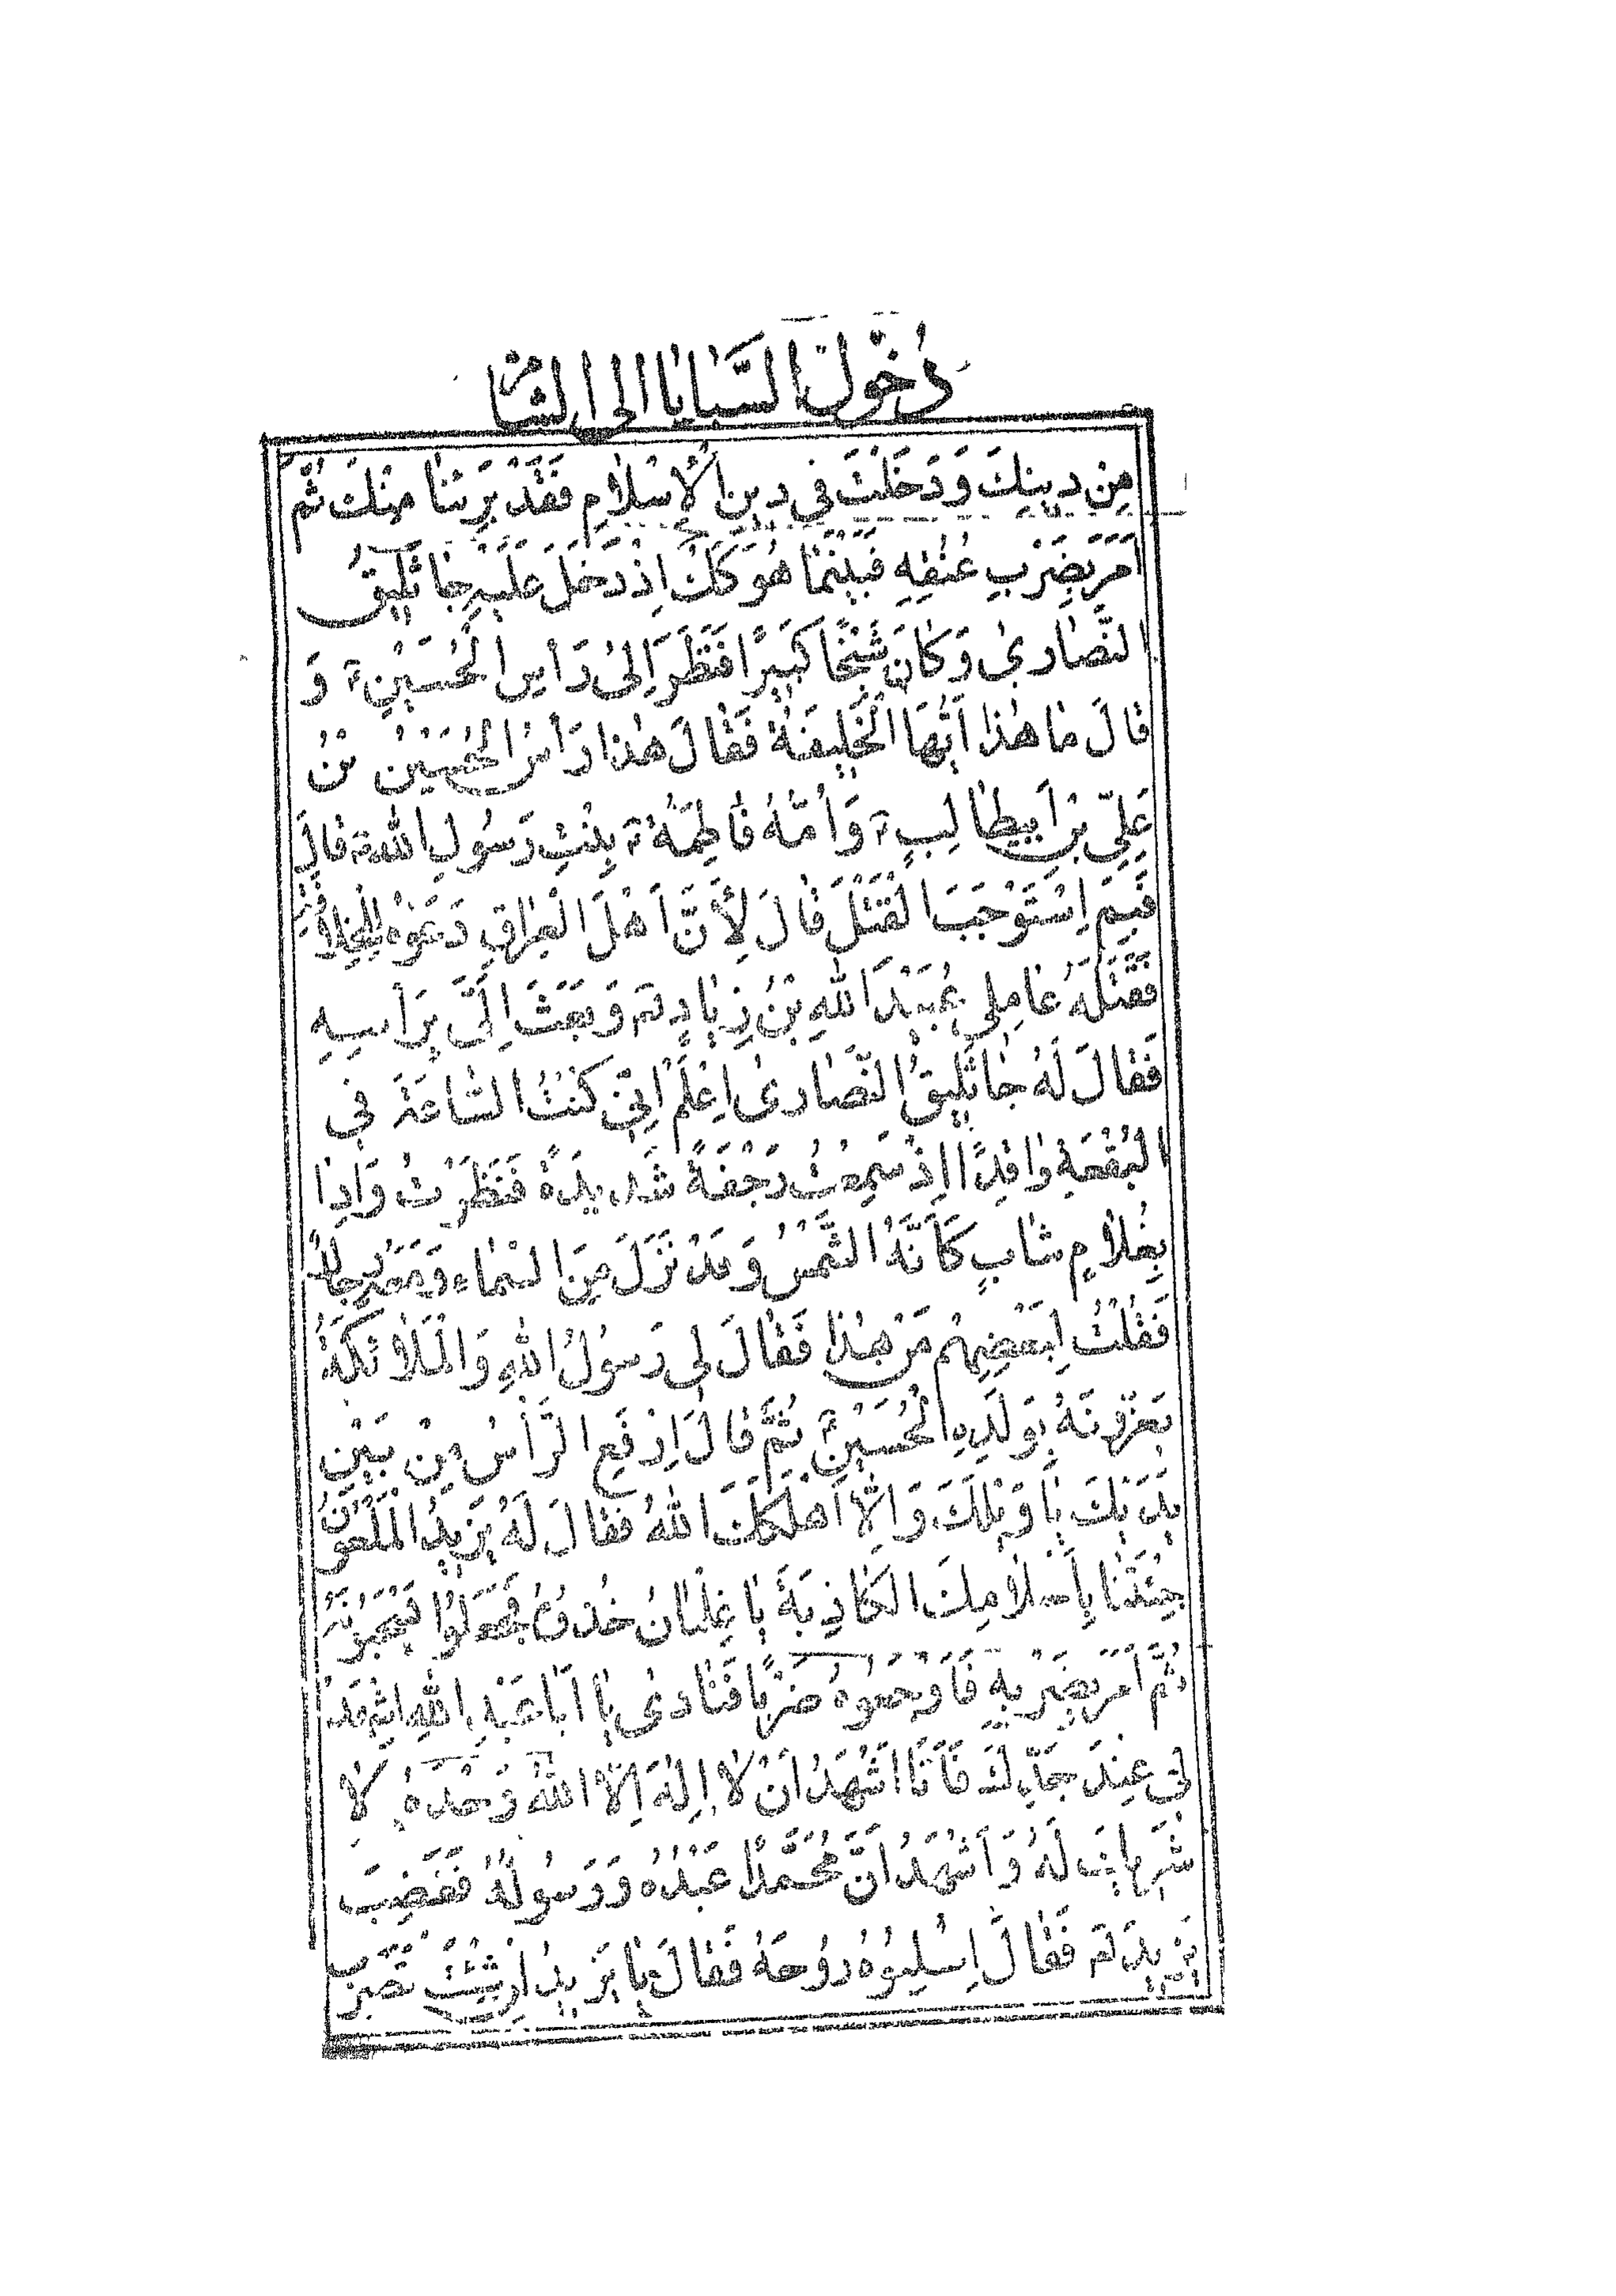 دُخُولُ السَّبَايَا اِلَى الشَّامِ
مِنْ دِينِكَ وَدَخَلْتَ فِي دِينِ الْاِسْلَامِ فَقَدْ بَرِئْنَا مِنْكَ ثُمَّ
اَمَرَ بِضَرْبِ عُنُقِهِ فَبَيْنَمَا هُوَ كَكَ اِذْ دَخَلَ عَلَيْهِ جَاثَلِيقُ
النَّصَارىٰ وَكَانَ شَيْخًا كَبِيرًا فَنَظَرَ اِلىٰ رَأْسِ الْحُسَيْنِ ع وَ
قَالَ مَا هٰذَا اَيُّهَا الْخَلِيفَةُ فَقَالَ هٰذَا رَأْسُ الْحُسَيْنِ بْنُ
عَلِيِّ بْنِ اَبِيطَالِبٍ ع وَاُمُّهُ فَاطِمَةُ ع بِنْتِ رَسُولِ اللهِ ص قَالَ
فَبِمَ اِسْتَوْجَبَ الْقَتْلَ قَالَ لِأَنَّ اَهْلَ الْعِرَاقِ دَعَوْهُ لِلْخِلَافَةِ
فَقَتَلَهُ عَامِلِي عُبَيْدَ اللهِ بْنُ زِيَادٍ لع وَبَعَثَ اِلَيَّ بِرَأْسِهِ
فَقَالَ لَهُ جَاثَلِيقُ النَّصَارىٰ اِعْلَمْ اِنِّي كُنْتُ السَّاعَةَ فِي
الْبُقْعَةِ رَاقِدًا اِذْ سَمِعْتُ رَجْفَةً شَدِيدَةً فَنَظَرْتُ وَاِذَا
بِغُلَامٍ شَابٍ كَاَنَّهُ الشَّمْسُ وَقَدْ نَزَلَ مِنَ السَّمَاءِ وَمَعَهُ رِجَالٌ
فَقُلْتُ لِبَعْضِهِمْ مَنْ هٰذَا فَقَالَ لِي رَسُولُ اللهِ وَالْمَلَائِكَةُ
يَعَزُّونَهُ بِوَلَدِهِ الْحُسَيْنِ ع ثُمَّ قَالَ اِرْفَعِ الرَّأْسَ مِنْ بَيْنِ
يَدَيْكَ يَا وَيْلَكَ وَاِلَّا اَهْلَكَكَ اللهُ فَقَالَ لَهُ يَزِيدُ الْمَلْعُونُ
جِئْتَنَا بِاَحْلَامِكَ الْكَاذِبَةَ يَا غِلْمَانُ خُذُوهُ فَجَعَلُوا
ثُمَّ اَمَرَ بِضَرْبِهِ فَاَوْجَعُوهُ ضَرْبًا فَنَادىٰ يَا اَبَا عَبْدِ اللهِ اشْهَدْ
لِي عِنْدَ جَدِّكَ فَاَنَا اَشْهَدُ اَنْ لَا اِلٰهَ اِلَّا اللهُ وَحْدَهُ لَا
شَرِيكَ لَهُ وَاَشْهَدُ اَنَّ مُحَمَّدًا عَبْدُهُ وَرَسُولُهُ فَغَضِبَ
يَزِيدُ لع فَقَالَ اِسْلِبُوهُ رُوحَهُ فَقَالَ يَا يَزِيدُ اِنْ شِئْتَ تَضْرِبُ